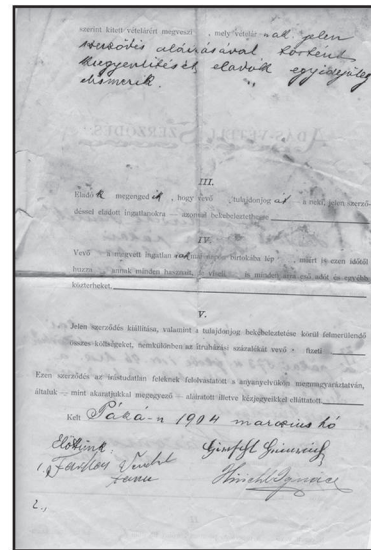 szerint kitett vételárért megveszi , mely vételár
jelen
szerződés aláírásával történt
eladók egyidejűleg
elismerik.
III.
Eladó k megenged ik, hogy vevő tulajdonjog át a neki, jelen szerző-
déssel eladott ingatlanokra — azonnal bekebeleztethesse.
IV.
Vevő a megvett ingatlan birtokába lép , miért is ezen időtől
annak minden hasznait, és viseli minden adót és egyébb
közterheket.
V.
Jelen szerződés kiállítása, valamint a tulajdonjog bekebeleztetése körül felmerülendő
összes költségeket, nemkülönben az átruházási százalékát vevő fizeti
Ezen szerződés az írástudatlan feleknek felolvastatott s anyanyelvükön megmagyaráztatván,
általuk — mint akaratjukkal megegyező — aláíratott illetve kézjegyeikkel elláttatott.
Kelt Páká-n 1904 marczius hó
Előttünk
1.,
Hirschl Ignácz
2.,